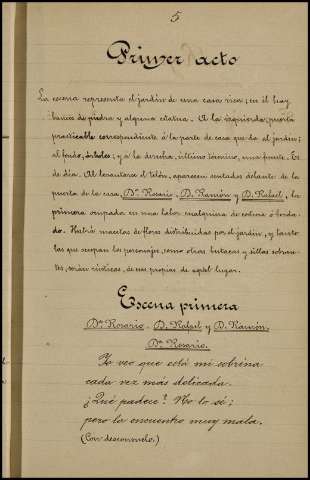 5
Primer acto
La escena representa el jardín de una casa rica; en él hay
bancos de piedra y alguna estatua. A la izquierda, puerta
practicable correspondiente á la parte de casa que da al jardín;
al fondo, árboles; y á la derecha, último término, una fuente. Es
de día. Al levantarse el telón, aparecen sentados delante de la
puerta de la casa, Dª Rosario, D. Ramón y D. Rafael, la
primera ocupada en una labor cualquiera de costura ó borda-
do. Habrá macetas de flores distribuidas por el jardín, y tanto
las que ocupan los personajes, como otras butacas y sillas sobran-
tes, serán rústicas, de las propias de aquel lugar.
Escena primera
Dª Rosario, D. Rafael y D. Ramón.
Dª Rosario.
Yo veo que está mi sobrina
cada vez más delicada.
¿Qué padece? No lo sé;
pero la encuentro muy mala.
(Con desconsuelo.)